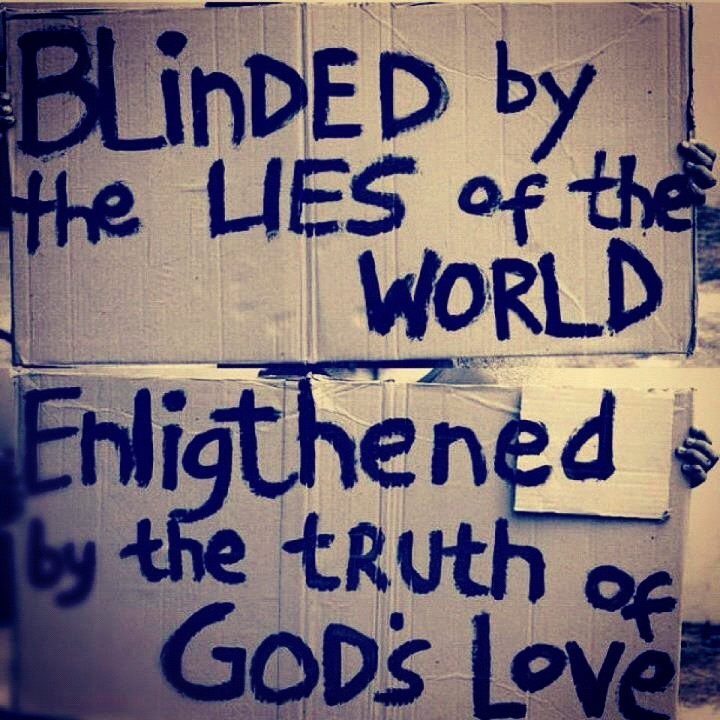 BLinDED by
the LIES of the
WORLD
Enligthened
by the tRUth of
GOD's LovE